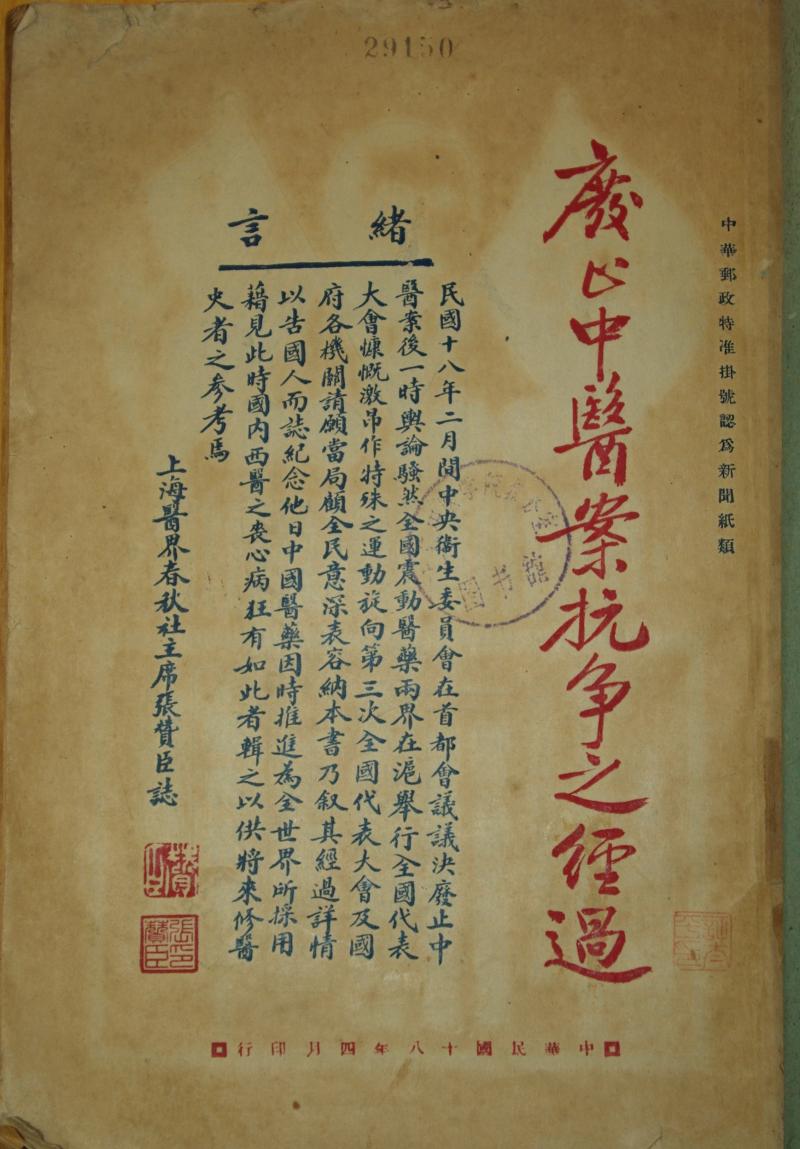 29150
中華郵政特准掛號認爲新聞紙類
廢止中醫案抗争之經過
緒言
民國十八年二月間中央衞生委員會在首都會議議決廢止中
醫案後一時輿論騷然全國震動醫藥兩界在滬舉行全國代表
大會慷慨激昂作特殊之運動旋向第三次全國代表大會及國
府各機關請願當局顧全民意深表容納本書乃叙其經過詳情
以告國人而誌紀念他日中國醫藥因時推進為全世界所採用
藉見此時國内西醫之喪心病狂有如此者輯之以供將來修醫
史者之参考焉
上海醫界春秋社主席張贊臣誌
張贊臣印
图书館
中華民國十八年四月印行